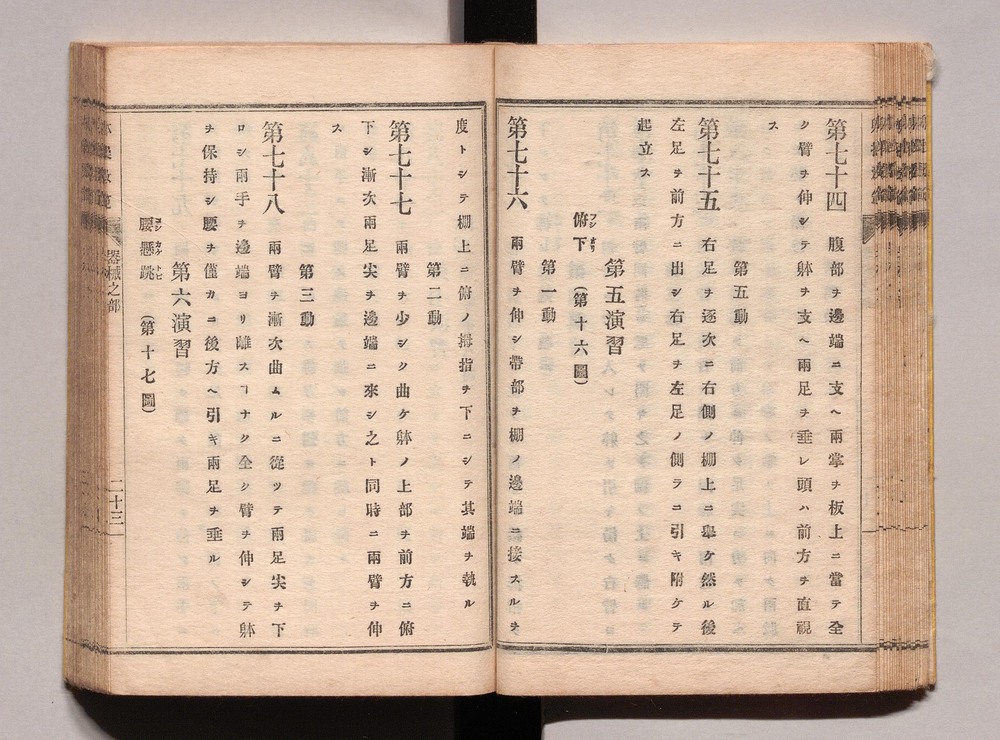 第七十四 腹部ヲ邊端ニ支ヘ兩掌ヲ板上ニ當テ全
ク臂ヲ伸シテ躰ヲ支ヘ兩足ヲ垂レ頭ハ前方ヲ直視
ス
第五動
第七十五 右足ヲ逐次ニ右側ノ棚上ニ擧ケ然ル後
左足ヲ前方ニ出シ右足ヲ左足ノ側ラニ引キ附ケテ
起立ス
第五演習
俯下(第十六圖)
第一動
第七十六 兩臂ヲ伸シ帶部ヲ棚ノ邊端ニ接スルヲ
度トシテ棚上ニ俯ノ拇指ヲ下ニシテ其端ヲ執ル
第二動
第七十七 兩臂ヲ少シク曲ケ躰ノ上部ヲ前方ニ俯
下シ漸次兩足尖ヲ邊端ニ來シ之ト同時ニ兩臂ヲ伸
ス
第三動
第七十八 兩臂ヲ漸次曲ムルニ從ツテ兩足尖ヲ下
ロシ兩手ヲ邊端ヨリ離スヿナク全ク臂ヲ伸シテ躰
ヲ保持シ腰ヲ僅カニ後方ヘ引キ兩足ヲ垂ル
第六演習
腰懸跳(第十七圖)
コシカケトビ
器械之部
二十三